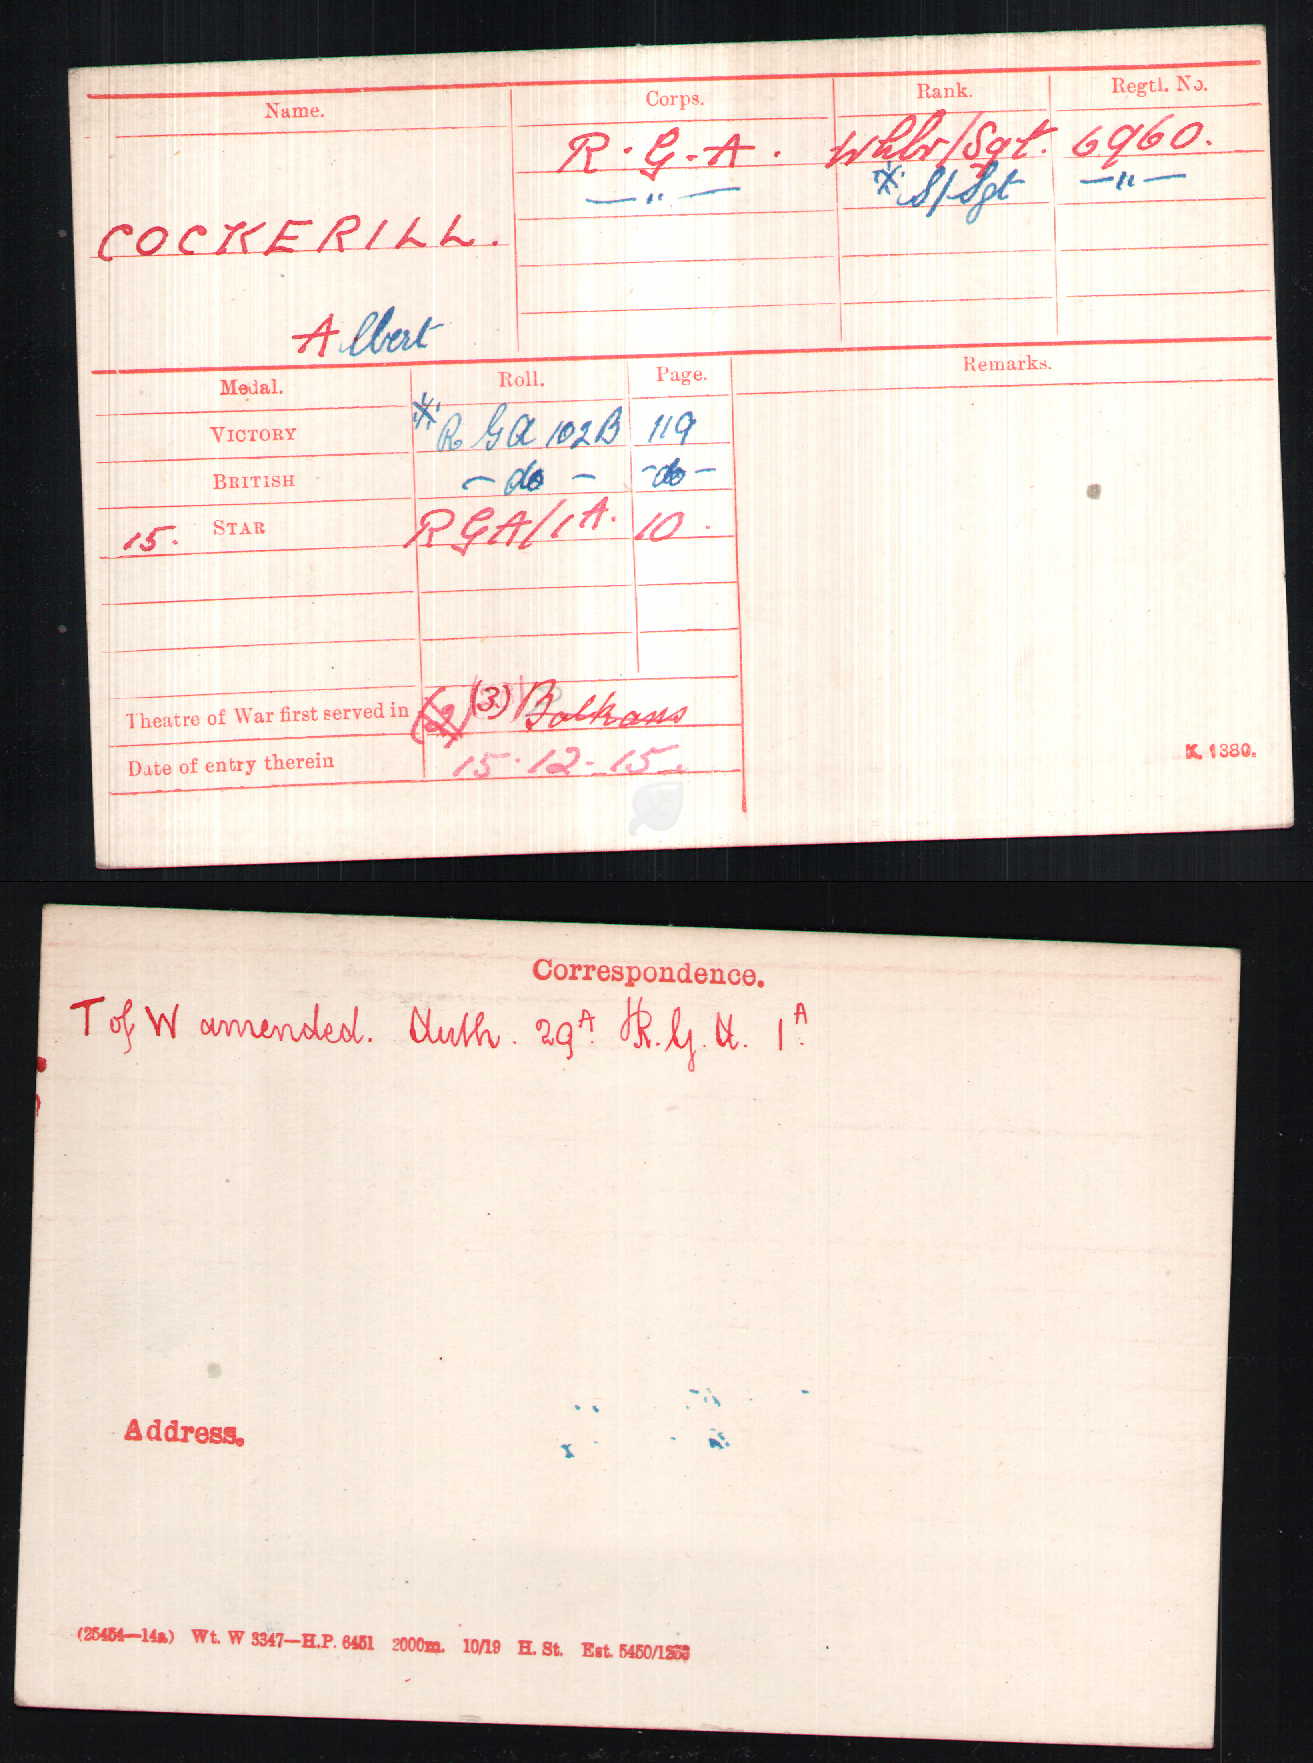 Name.
Corps.
Rank.
Regtl. No.
R.G.A.
Whlr/Sgt.
6960.
—"—
※ S/Sgt
—"—
COCKERILL.
Albert
Medal.
Roll.
Page.
Remarks.
VICTORY
※ RGA 102B
119
BRITISH
- do -
- do -
15. STAR
RGA/1A.
10.
Theatre of War first served in
(3) Balkans
Date of entry therein
15.12.15.
K. 1380.
Correspondence.
T of W amended. Auth. 29A R.G.A. 1A.
Address.
(25454—14a) Wt. W 3347—H.P. 6451 2000m. 10/19 H. St. Est. 5450/